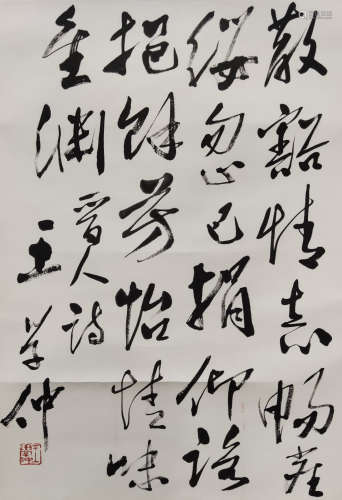 散豁情志暢塵
纓忽已捐仰詠
挹餘芳怡情味
重渊
晋人詩
王学仲